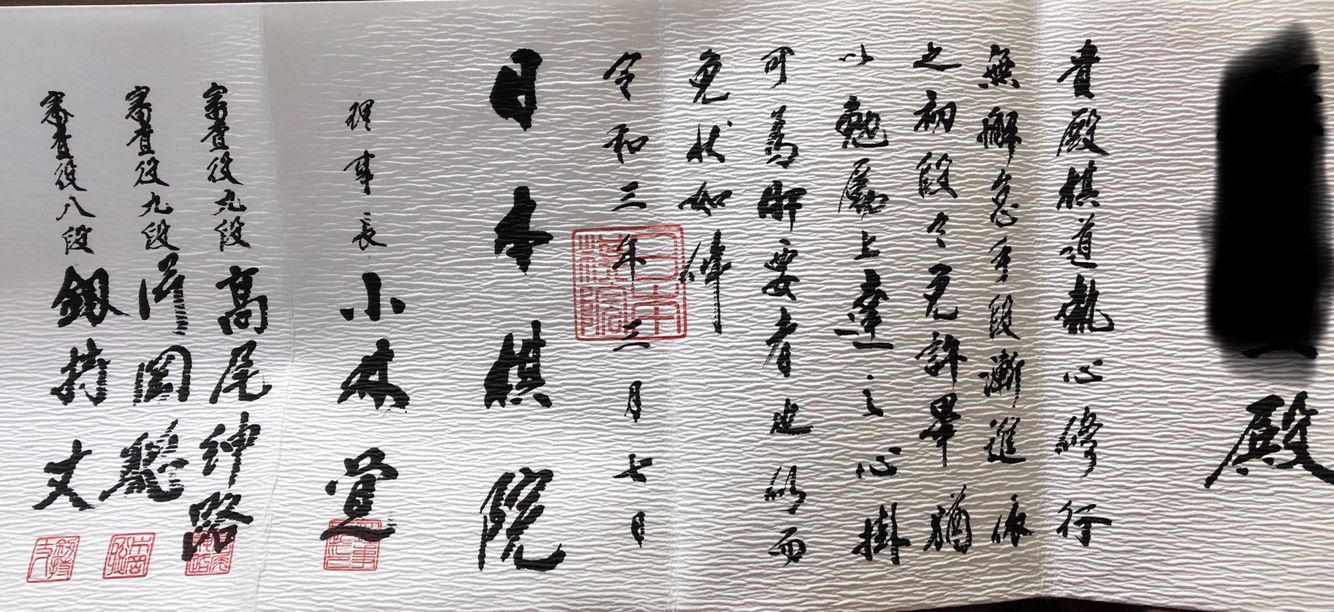 殿
貴殿棋道執心修行
無懈怠手段漸進依
之初段令免許畢猶
以勉厲上達之心掛
可為肝要者也仍而
免状如件
令和三年三月七日
日本棋院
日本棋院
理事長 小林覚
審査役九段 高尾紳路
審査役九段 片岡聰
審査役八段 釼持丈